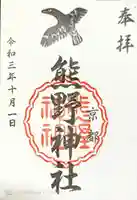 奉拝
京都
熊野神社
令和三年十月一日